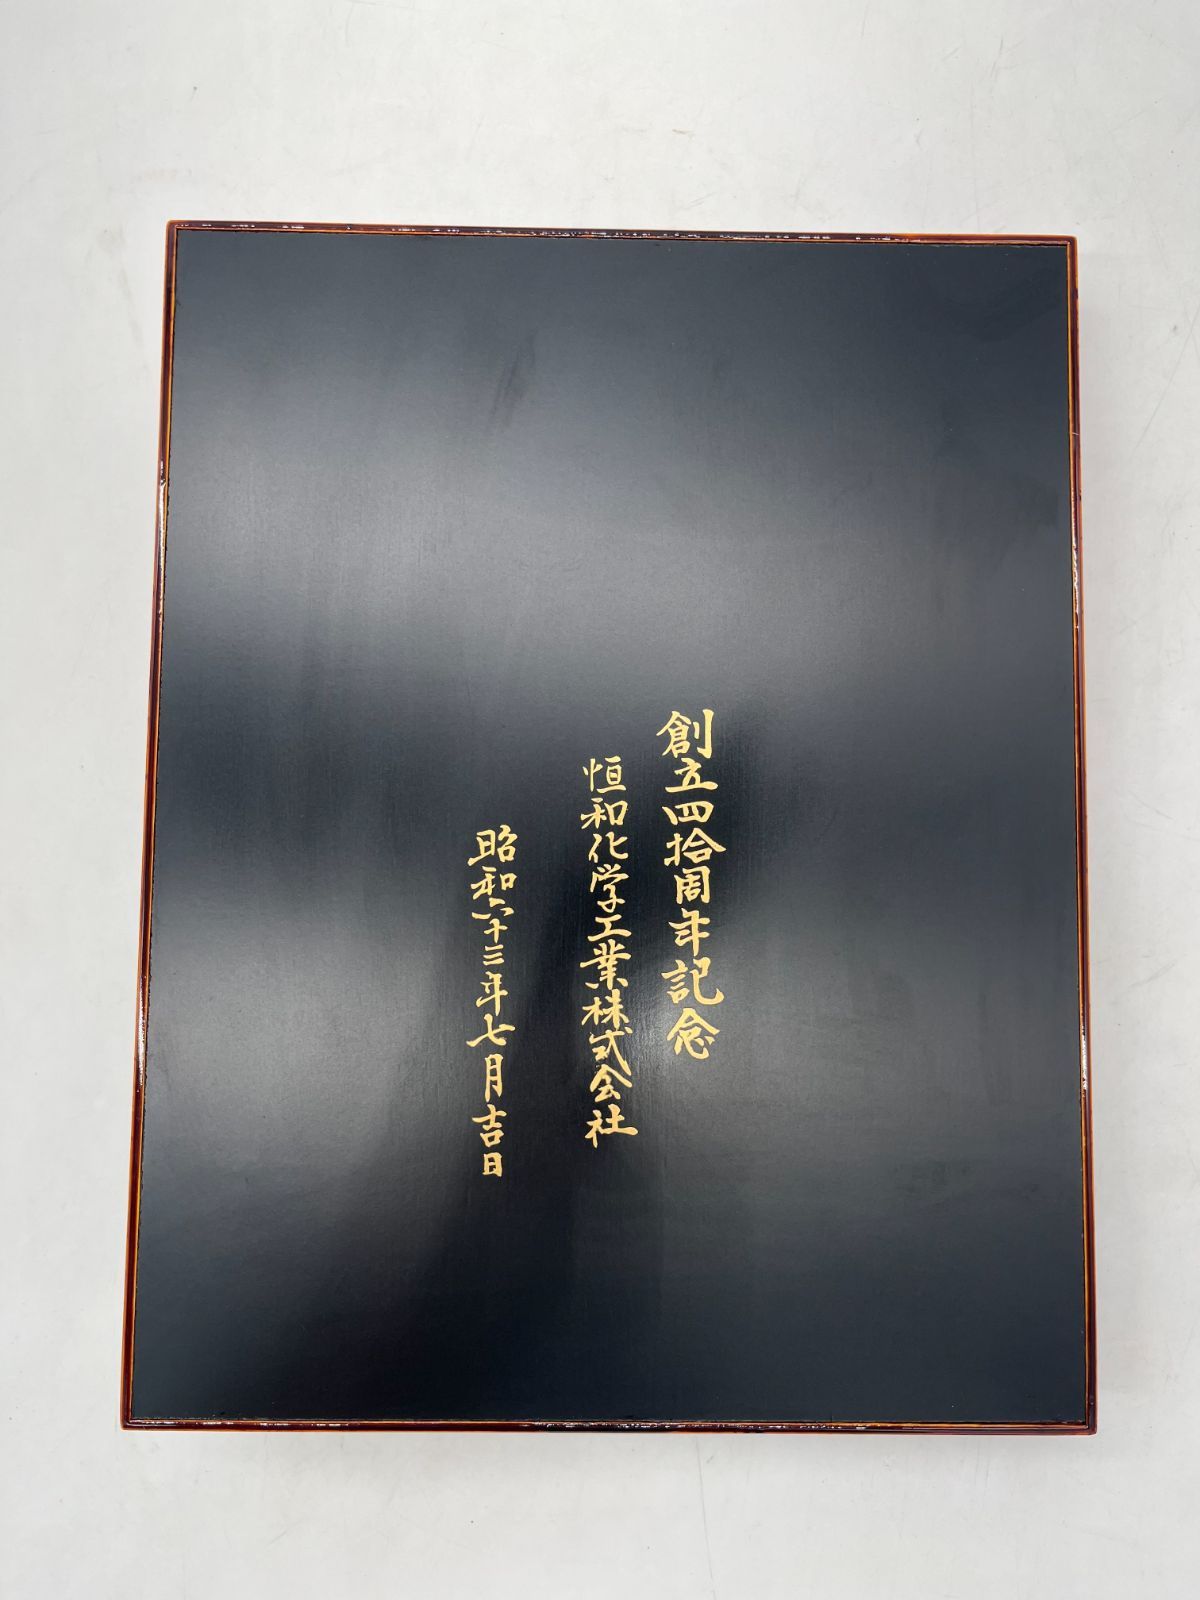 創立四拾周年記念
恒和化学工業株式会社
昭和六十三年七月吉日